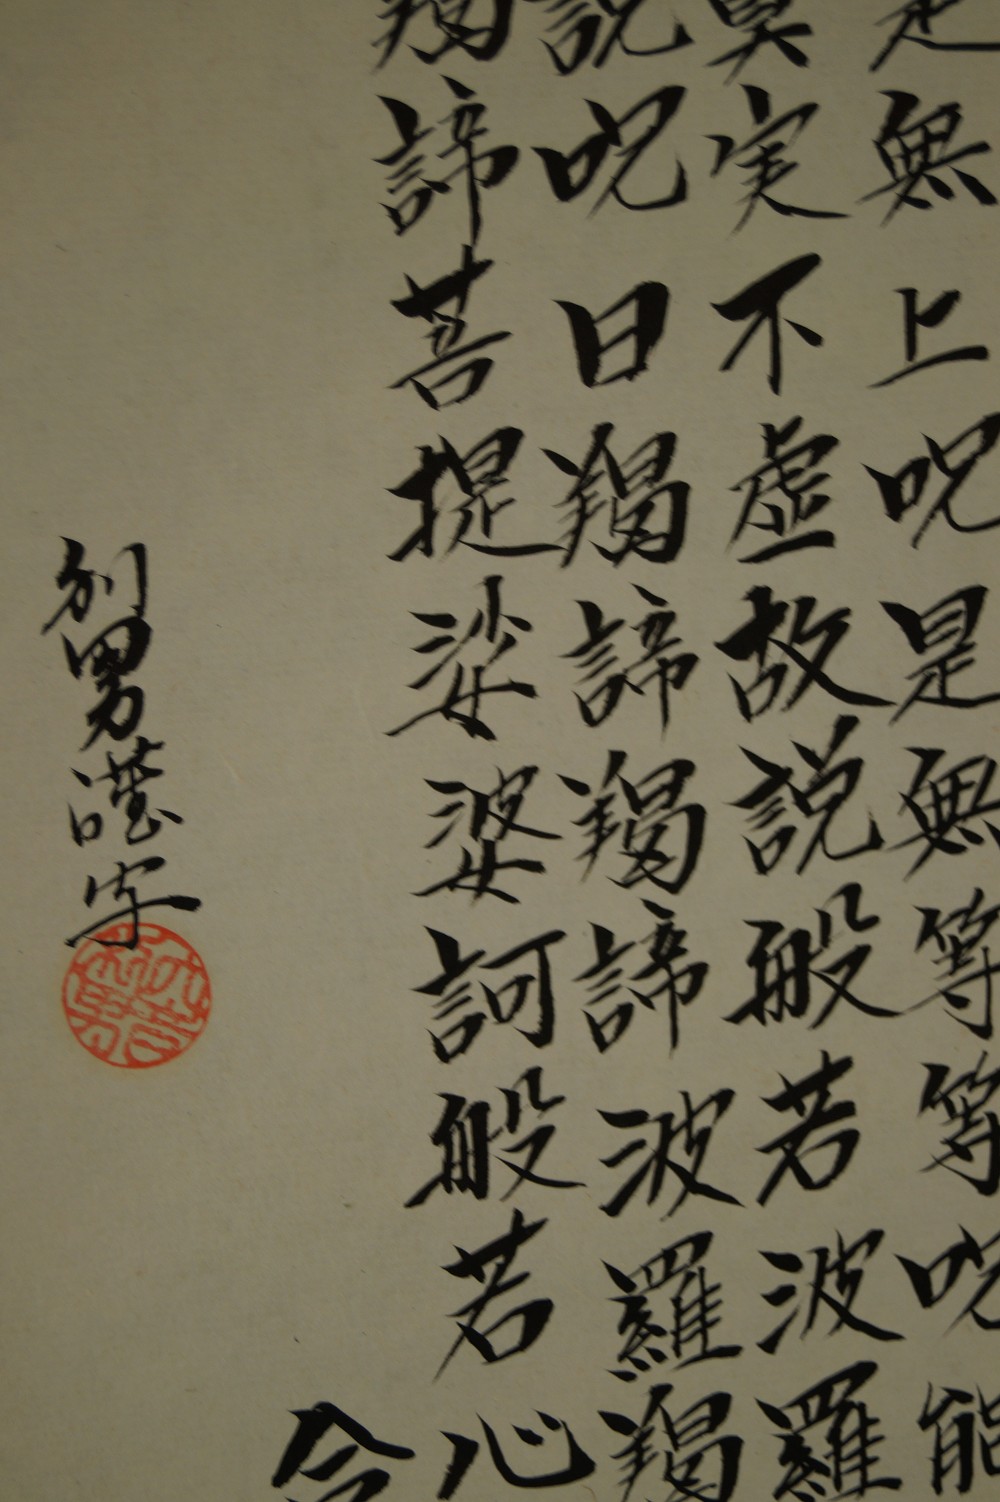 是無上呪是無等等呪能
眞実不虚故説般若波羅
説呪曰羯諦羯諦波羅羯
羯諦菩提娑婆訶般若心